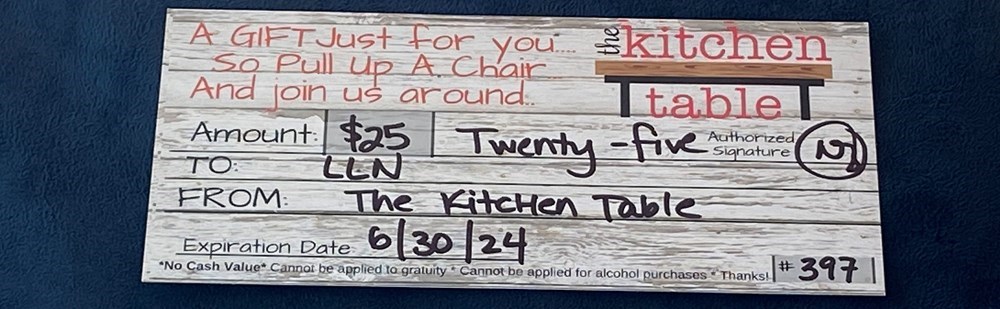 A GIFT Just for you....
So Pull Up A Chair
And join us around..
the kitchen
table
Amount: $25 Twenty-five Authorized Signature
TO: LLN
FROM: The KitcHen Table
Expiration Date 6/30/24
*No Cash Value* Cannot be applied to gratuity * Cannot be applied for alcohol purchases * Thanks! # 397